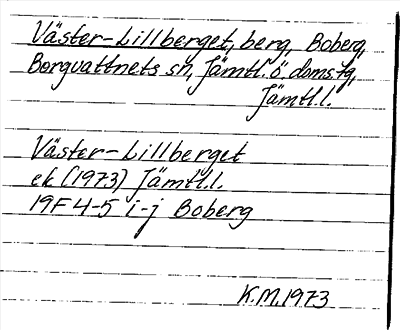 Väster-Lillberget, berg, Boberg,
Borgvattnets sn, Jämtl. ö. doms tg,
Jämtl.l.
Väster-Lillberget
ek (1973) Jämtl.l.
19F 4-5 i-j Boberg
K.M. 1973